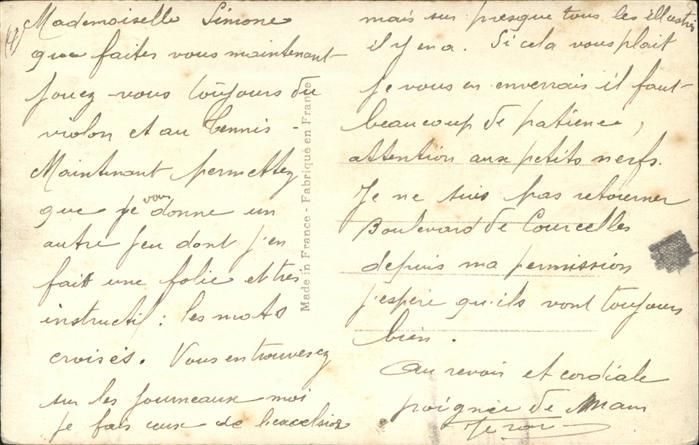 4)
Mademoiselle Simone
que faites vous maintenant
jouez-vous toujours du
violon et au tennis -
Maintenant permettez
que je vous donne un
autre jeu dont j'en
fait une folie et très
instructif : les mots
croisés. Vous en trouverez
sur les journeaux moi
je fais ceux de l'excelsior
mais sur presque tous les illustrés
il y en a. Si cela vous plait
je vous en enverrais il faut
beaucoup de patience,
attention aux petits nerfs.
Je ne suis pas retourner
Boulevard de Courcelles
depuis ma permission
j'espère qu'ils vont toujours
bien.
Au revoir et cordiale
poignée de main
Made in France - Fabriqué en France